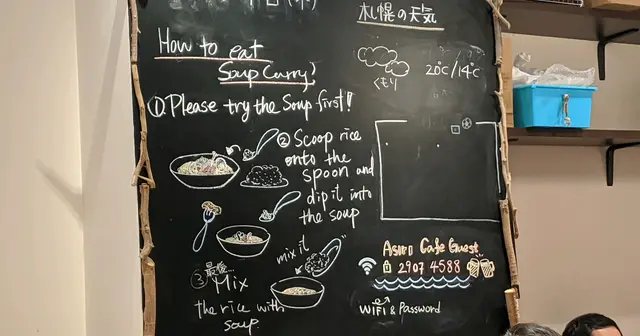 How to eat
Soup Curry?
①. Please try the Soup first!!
② Scoop rice
onto the
spoon and
dip it into
the soup
mix it
③ 最後...
Mix
the rice with
soup
札幌の天気
くもり
20℃/14℃
ASIRI Cafe Guest
2907 4588
WiFi & Password